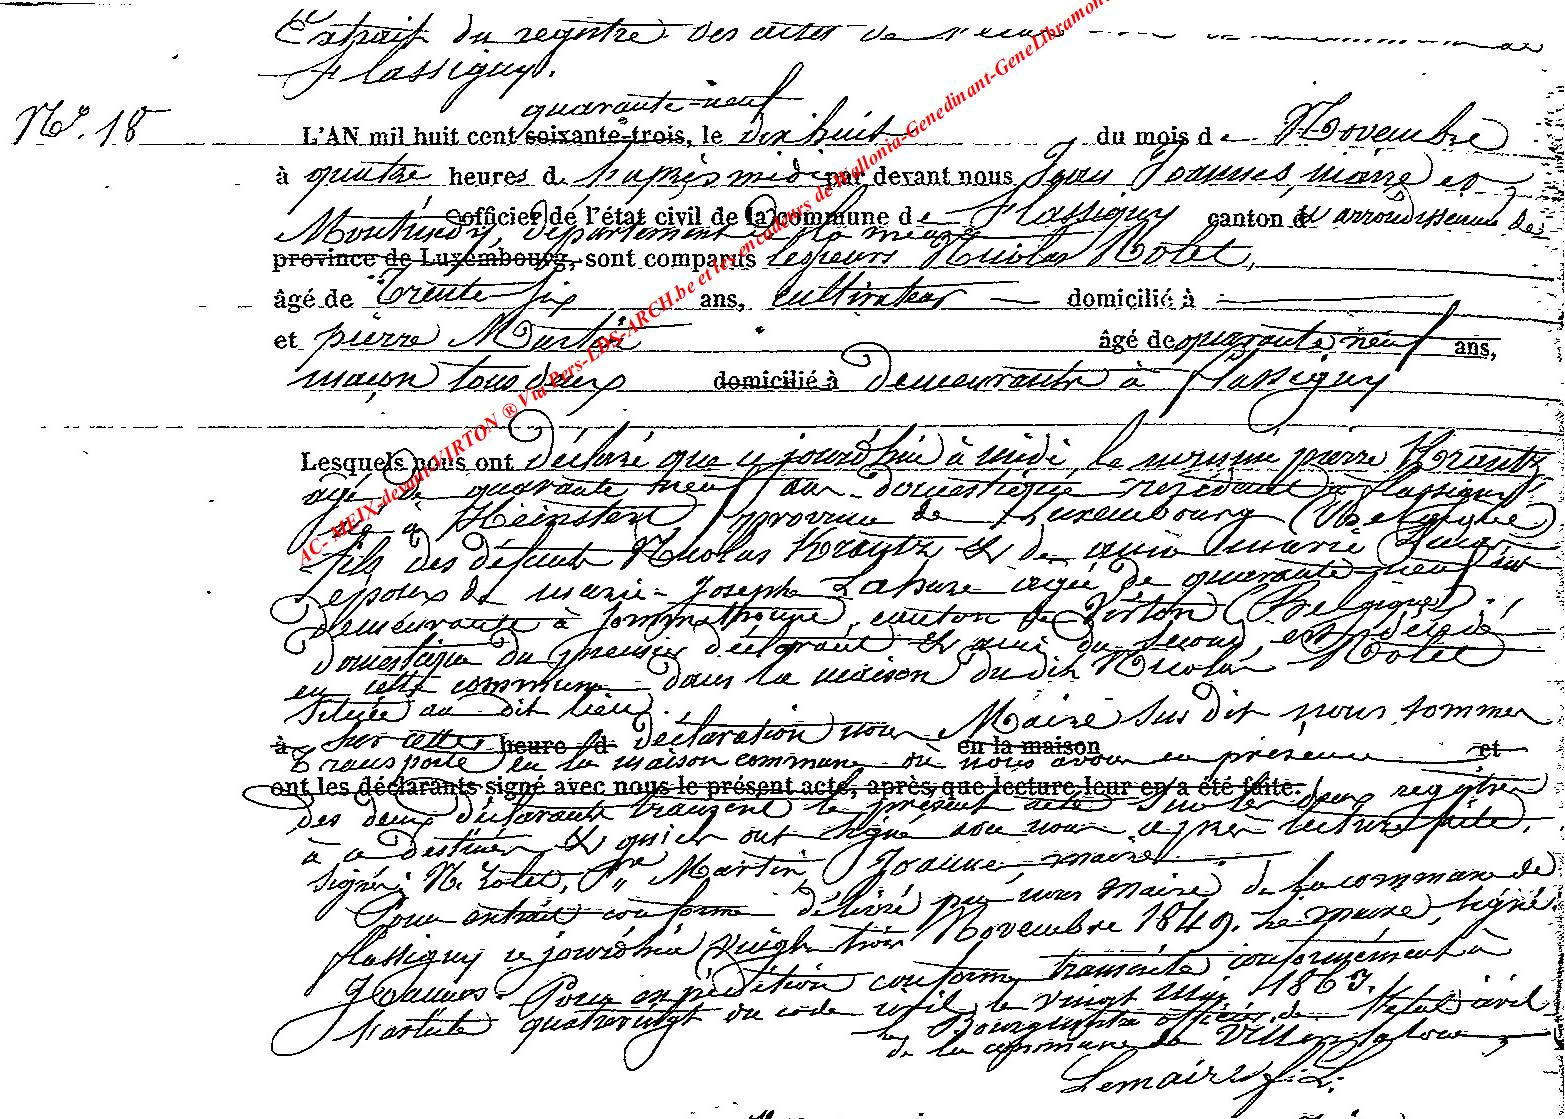 Extrait du registre des actes de
Flassigny.
quarante-neuf
No. 18 L'AN mil huit cent soixante-trois, le dix huit du mois de Novembre
à quatre heures de l'après midi par devant nous Jean Joannes maire et
officier de l'état civil de la commune de Flassigny canton d arrondissement de
Montmédy, département de la meuse
province de Luxembourg, sont comparus les sieurs Nicolas Kolet,
âgé de Trente six ans, cultivateur domicilié à
et pierre Martin âgé de quarante neuf ans,
maçon tous deux domicilié à demeurants à flassigny
Lesquels nous ont déclaré que ce jourd'hui à midi, le nommé pierre Krautz
agé de quarante neuf ans domestique résidant à flassigny
né à Heinstert, province de Luxembourg (Belgique)
fils des défunts Nicolas Krautz & de anne marie
époux de marie-Joseph Lahure agée de quarante-neuf ans
demeurante à Sommethonne, canton de Virton (Belgique),
domestique du premier déclarant & ami du second est décédé
en cette commune dans la maison du dit Nicolas Kolet
située au dit lieu.
à sur cette heure d déclaration nous Maire sus dit nous sommes
en la maison et
transporté en la maison commune où nous avons en présence
ont les déclarants signé avec nous le présent acte, après que lecture leur en a été faite.
des deux déclarants transcrit le présent acte sur les deux registres
à ce destinés & qui ont signé avec nous après lecture faite.
Signé: N. Kolet, Pre Martin, Joannes maire
Pour extrait conforme délivré par nous Maire de la commune de
flassigny ce jourd'hui vingt trois Novembre 1849. Le maire, signé
Joannes. Pour expédition conforme transcrite conformément à
l'article quatrevingt du code civil, le vingt Mai 1863.
Le Bourgmestre officier de l'état civil
de la commune de Villers la loue,
Lemaire f. L.
AC- MEIX-devant-VIRTON ® Via Pers-LDS-ARCH.be et les encadeurs de Wallonia-Genedinant-GeneLibramont